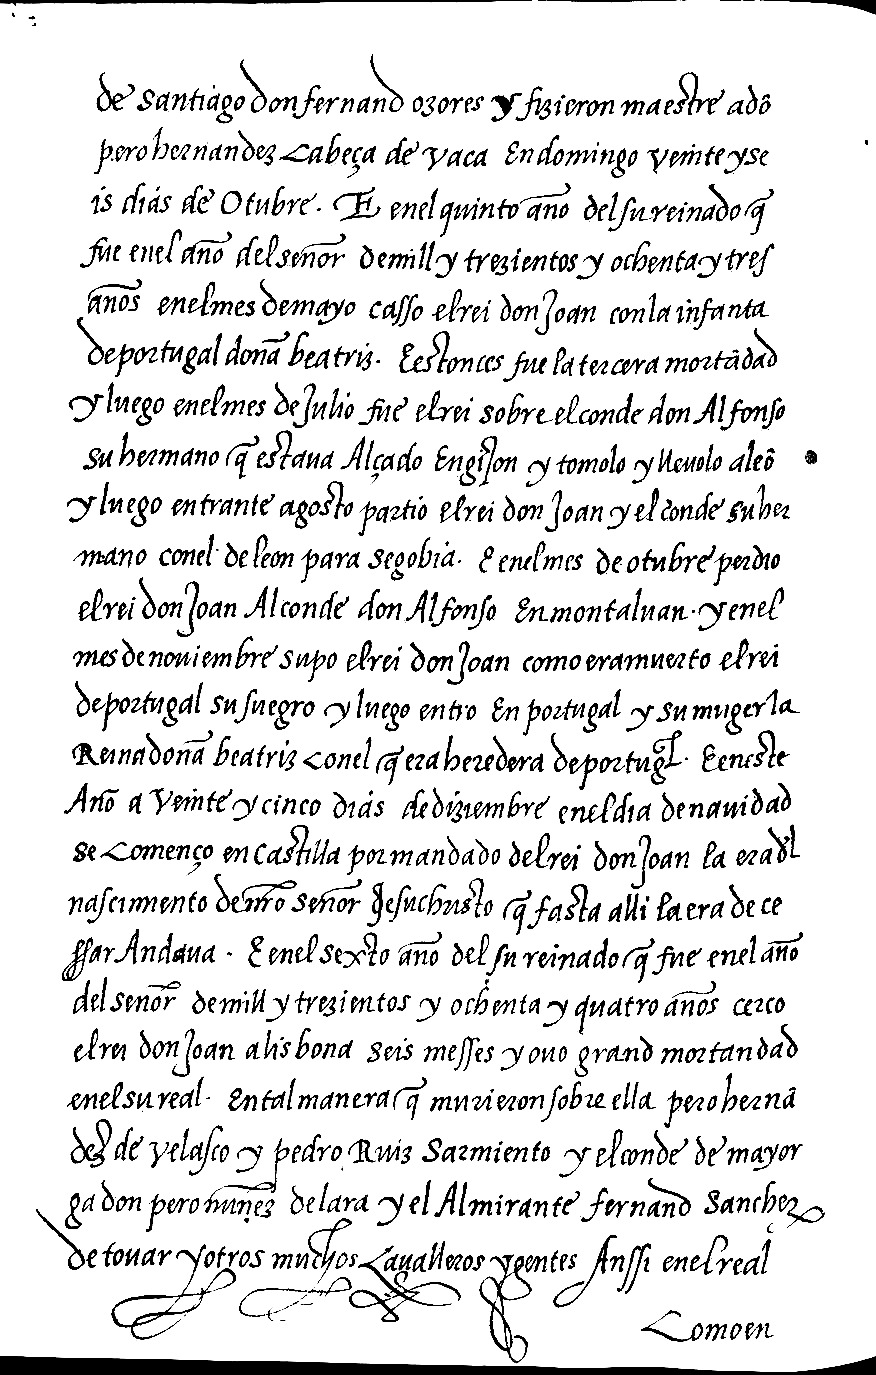 de Santiago don fernand ozores y fizieron maestre a dõ
pero hernandez Cabeça de vaca En domingo veinte y se
is dias de Otubre. E enel quinto año del su reinado q̃
fue enel año del señor de mill y trezientos y ochenta y tres
años enel mes de mayo casso el rei don Joan con la infanta
de portugal doña beatriz. E estonces fue la tercera mortãdad
y luego enel mes de Julio fue el rei sobre el conde don Alfonso
su hermano q̃ estaua Alçado En gijon y tomolo y lleuolo a leõ
y luego entrante agosto partio el rei don Joan y el conde su her
mano con el de leon para segobia. E enel mes de otubre perdio
el rei don Joan Al conde don Alfonso En montaluan. y enel
mes de noviembre supo el rei don Joan como era muerto el rei
de portugal su suegro y luego entro En portugal y su muger la
Reina doña beatriz con el q̃ era heredera de portugl. E eneste
Año a veinte y cinco dias de diziembre enel dia de nauidad
se Començo en Castilla por mandado del rei don Joan la era dl
nascimiento de nr̃o señor Jesuchristo q̃ fasta alli la era de ce
ssar Andaua. E enel sexto año del su reinado q̃ fue enel año
del señor de mill y trezientos y ochenta y quatro años cerco
el rei don Joan a lisbona seis messes y ouo grand mortandad
enel su real. En tal manera q̃ murieron sobre ella pero hernã
dez de velasco y pedro Ruiz Sarmiento y el conde de mayor
ga don pero nuñez de lara y el Almirante fernand Sanchez
de touar y otros muchos Caualleros y gentes Anssi enel real
Como en